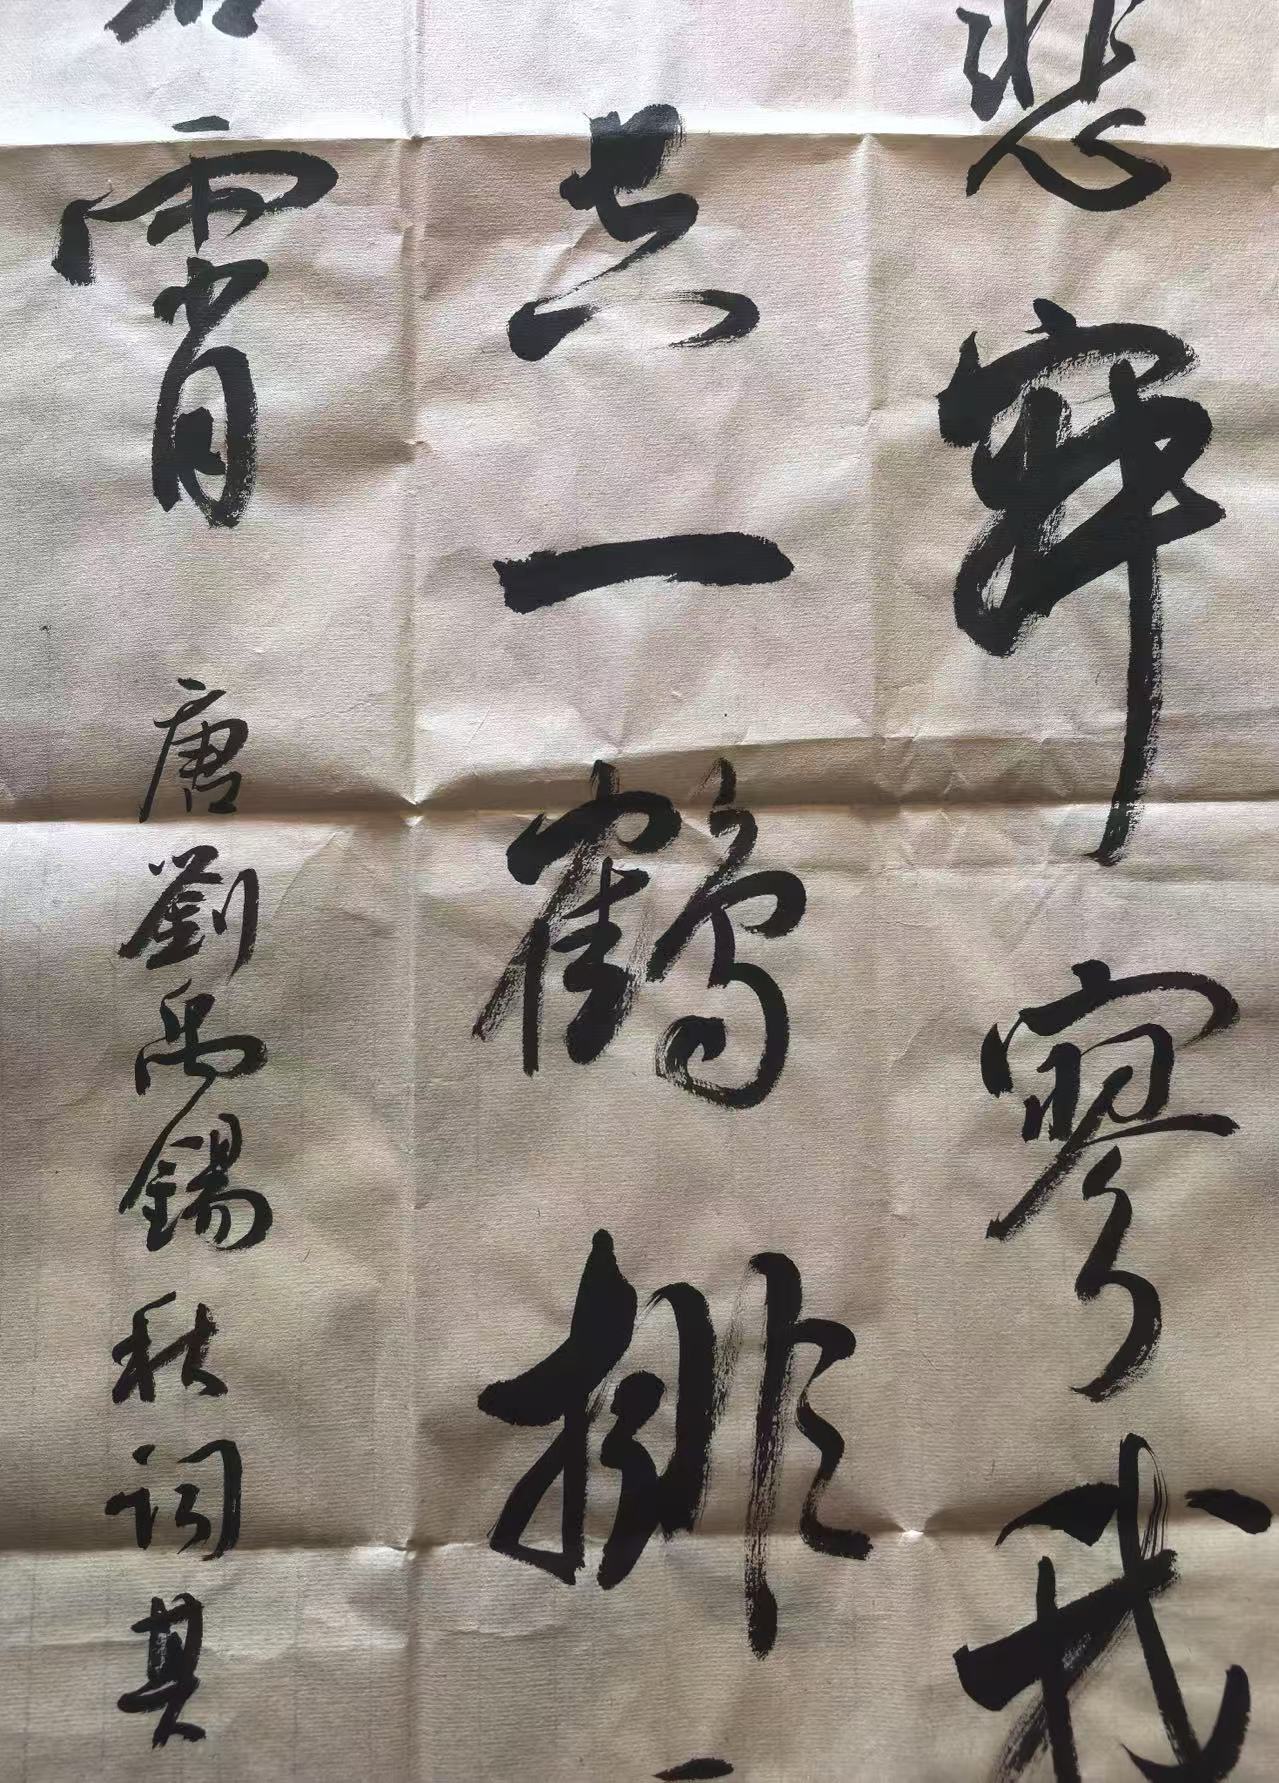 悲寂寥我
空一鶴排
霄 唐劉禹錫秋詞其